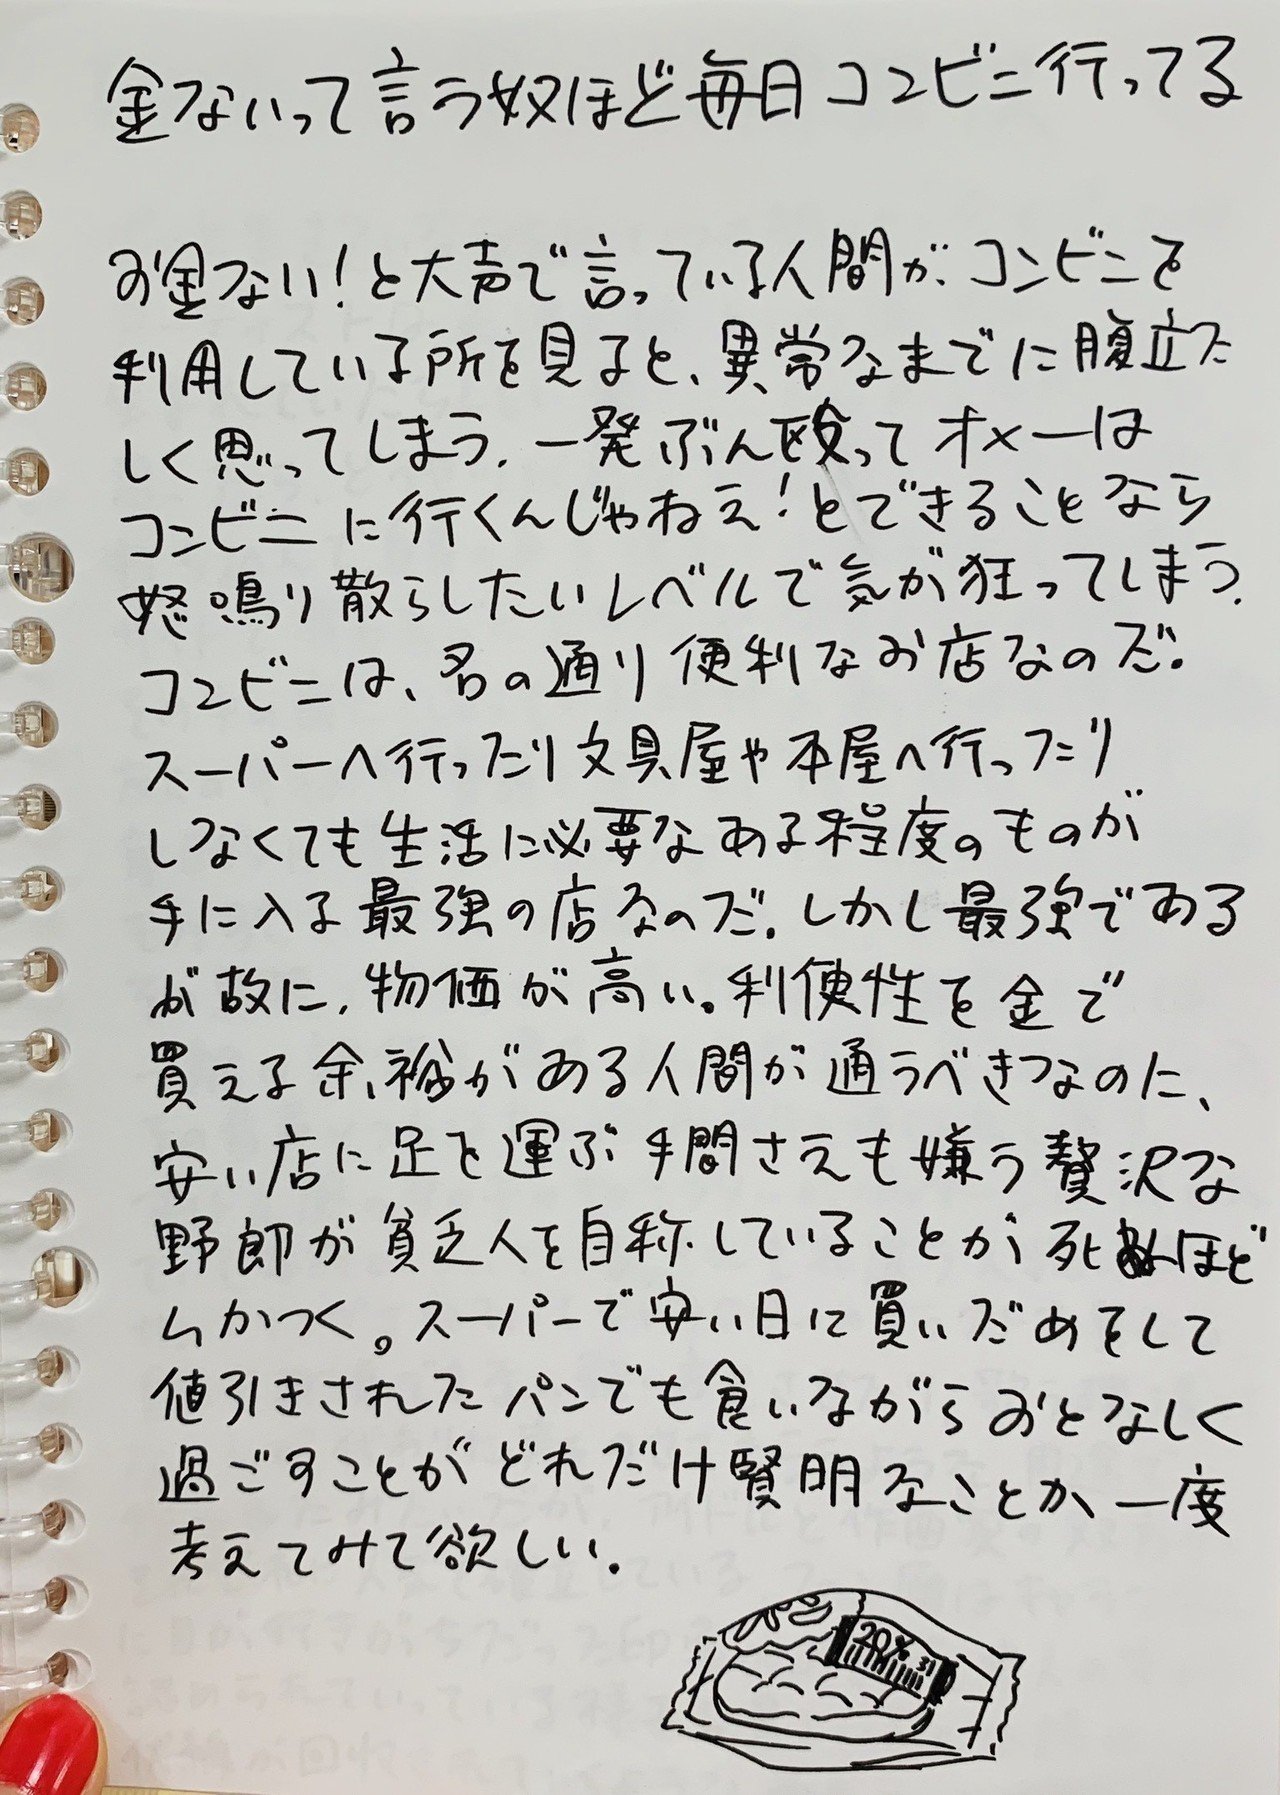 金ないって言う奴ほど毎日コンビニ行ってる
お金ない！と大声で言っている人間が、コンビニを
利用している所を見ると、異常なまでに腹立た
しく思ってしまう。一発ぶん殴ってオメーは
コンビニに行くんじゃねえ！とできることなら
怒鳴り散らしたいレベルで気が狂ってしまう。
コンビニは、名の通り便利なお店なのだ。
スーパーへ行ったり文具屋や本屋へ行ったり
しなくても生活に必要なある程度のものが
手に入る最強の店なのだ。しかし最強である
が故に、物価が高い。利便性を金で
買える余裕がある人間が通うべきなのに、
安い店に足を運ぶ手間さえも嫌う贅沢な
野郎が貧乏人を自称していることが死ぬほど
ムかつく。スーパーで安い日に買いだめをして
値引きされたパンでも食いながらおとなしく
過ごすことがどれだけ賢明なことか、一度
考えてみて欲しい。
20%
31